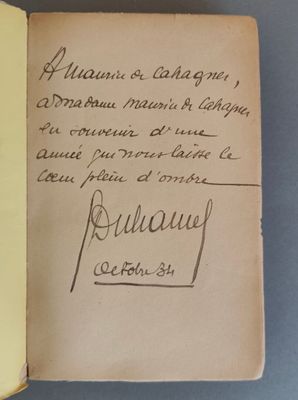 A Maurice de Cahagnes,
à Madame Maurice de Cahagnes
en souvenir d'une
année qui nous laisse le
cœur plein d'ombre
GDuhamel
Octobre 34